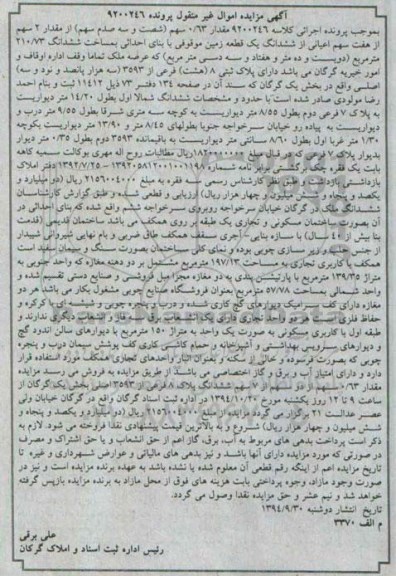 آگهی مزایده اموال غیر منقول پرونده ۹۲۰۰۲۴۶
بموجب پرونده اجرائی کلاسه ۹۲۰۰۲۴۶ مقدار ۰/۶۳ سهم (شصت و سه صدم سهم) از مقدار ۲ سهم
از هفت سهم اعیانی از ششدانگ یک قطعه زمین موقوفی با بنای احداثی بمساحت ششدانگ ۲۱۰/۷۳
مترمربع (دویست و ده متر و هفتاد و سه دسی متر مربع) که عرصه ملک تماما وقف اداره اوقاف و
امور خیریه گرگان می باشد دارای پلاک ثبتی ۸ (هشت) فرعی از ۳۵۹۳ (سه هزار پانصد و نود و سه)
اصلی واقع در بخش یک گرگان که سند آن در صفحه ۱۳۴ دفتر ۷۳ ذیل ۱۱۴۱۲ ثبت و بنام احمد
رضا مولودی صادر شده است با حدود و مشخصات ششدانگ شمالا اول بطول ۱۴/۲۰ متر دیواریست
به پلاک ۷ فرعی دوم بطول ۸/۵۵ متر دیواریست به کوچه سه متری شرقا بطول ۹/۵۵ متر درب و
دیواریست به پیاده رو خیابان سرخواجه جنوبا بطولهای ۸/۴۵ متر و ۱۳/۹۰ متر دیواریست بکوچه
۱/۳۰ متر غربا اول بطول ۸/۶۰ سانتی متر دیواریست به باقیمانده ۳۵۹۳ دوم بطول ۰/۳۵ متر دیوار
بدیوار پلاک ۷ فرعی که در قبال مبلغ ریال مطالبات روح اله مهری با وکالت سمیه کاهه
بابت یک فقره چک برگشتی برابر نامه شماره دفتر املاک
بازداشتی بازداشت و طبق نظر کارشناس رسمی سه فقره به مبلغ ۲۱۵۶۰۰۴۰۰۰ ریال (دو میلیارد و
یکصد و پنجاه و شش میلیون و چهار هزار ریال) ارزیابی و قطعی شده و طبق گزارش کارشناسان
ششدانگ ملک در گرگان خیابان سرخواجه روبروی سرخواجه ششم واقع شده که بنای احداثی در
آن بصورت ساختمان مسکونی و تجاری یک طبقه بر روی همکف می باشد ساختمان قدیمی (قدمت
بنا بیش از ۴۰ سال) با سازه بنایی آجری سقف همکف طاق ضربی و بام نهایی شیروانی شیبدار
از جنس حلب و زیر سازی چوبی بوده و نمای کلی ساختمان بصورت سنگ و سیمان سفید است
همکف با کاربری تجاری به مساحت ۱۹۷/۱۳ مترمربع مشتمل بر دو دهنه مغازه که واحد جنوبی به
متراژ ۱۳۹/۳۵ مترمربع با پارتیشن بندی به دو مغازه مجزا مبل فروشی و صنایع دستی تقسیم شده و
واحد شمالی بمساحت ۵۷/۷۸ مترمربع بعنوان فروشگاه صنایع چوبی مشغول بکار می باشد هر دو
مغازه دارای کف سرامیک دیوارهای گچ کاری شده و درب و پنجره چوبی و شیشه ای با کرکره و
حفاظ فلزی می باشد هر دو واحد تجاری دارای یک انشعاب برق و گاز و انشعاب دیگری ندارند و
طبقه اول با کاربری مسکونی به صورت یک واحد به متراژ ۱۵۰ مترمربع با دیوارهای سالن اندود گچ
و دیوارهای سرویس بهداشتی و آشپزخانه و حمام کاشی کاری کف پوشش سیمان درب و پنجره
چوبی که بصورت فرسوده و خالی از سکنه و بعنوان انبار واحدهای تجاری همکف مورد استفاده قرار
دارد و دارای امتیاز آب و برق و گاز اختصاصی می باشد از طریق مزایده به فروش می رسد مزایده
مقدار ۰/۶۳ سهم از ۲ سهم ششدانگ پلاک ۸ فرعی از ۳۵۹۳ اصلی بخش یک گرگان از
ساعت ۹ تا ۱۲ روز یکشنبه مورخ ۱۳۹۴/۱۰/۲۰ در اداره ثبت اسناد گرگان واقع در گرگان خیابان ولی
عصر عدالت ۲۱ برگزار می گردد مزایده از مبلغ ۲۱۵۶۰۰۴۰۰۰ ریال (دو میلیارد و یکصد و پنجاه و
شش میلیون و چهار هزار ریال) شروع و به بالاترین قیمت پیشنهادی نقدا فروخته می شود. لازم به
ذکر است پرداخت بدهی های مربوط به آب، برق، گاز اعم از حق انشعاب و یا حق اشتراک و مصرف
در صورتی که مورد مزایده دارای آنها باشد و نیز بدهی های مالیاتی و عوارض شهرداری و غیره تا
تاریخ مزایده اعم از اینکه رقم قطعی آن معلوم شده یا نشده باشد به عهده برنده مزایده است و نیز در
صورت وجود مازاد، وجوه پرداختی بابت هزینه های فوق از محل مازاد به برنده مزایده بازپس گرفته
خواهد شد و نیم عشر و حق مزایده نقدا وصول می گردد.
تاریخ انتشار دوشنبه ۱۳۹۴/۹/۳۰
م الف ۳۳۷۰
علی برقی
رئیس اداره ثبت اسناد و املاک گرگان